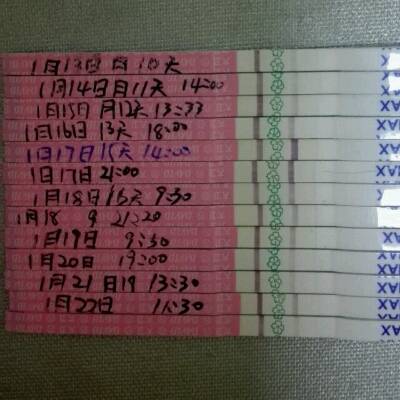 1月13日月10天
1月14日月11天 14:00
1月15日月12天 13:33
1月16日 13天 18:00
1月17日15天 14:00
1月17日 21:00
1月18日15天 9:30
1月18 9 21:20
1月19日 9:30
1月20日 19:00
1月21日19 13:30
1月22日 11:30